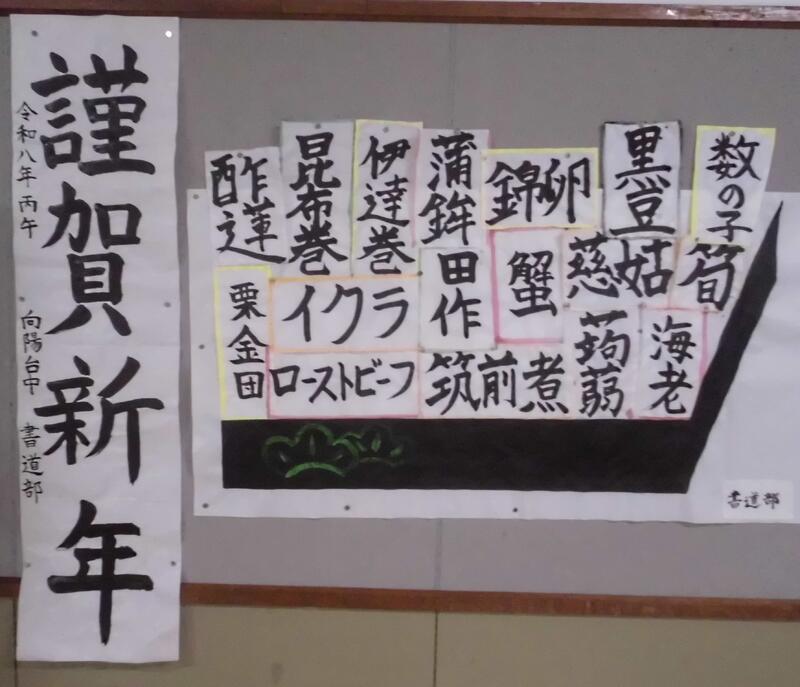 謹賀新年
令和八年丙午
向陽台中 書道部
酢蓮
昆布巻
伊達巻
蒲鉾
錦卵
黒豆
数の子
栗金団
イクラ
田作
蟹
慈姑
筍
ローストビーフ
筑前煮
蒟蒻
海老
書道部